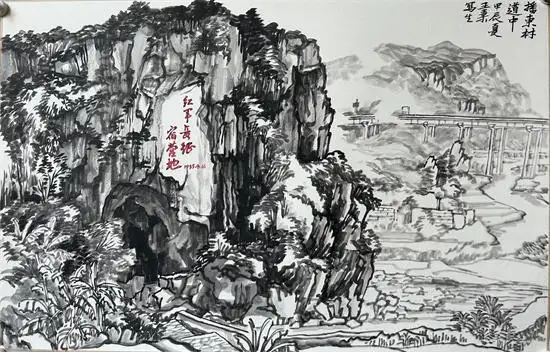 播東村
道中
甲辰夏
寫生
红军長征
宿营地